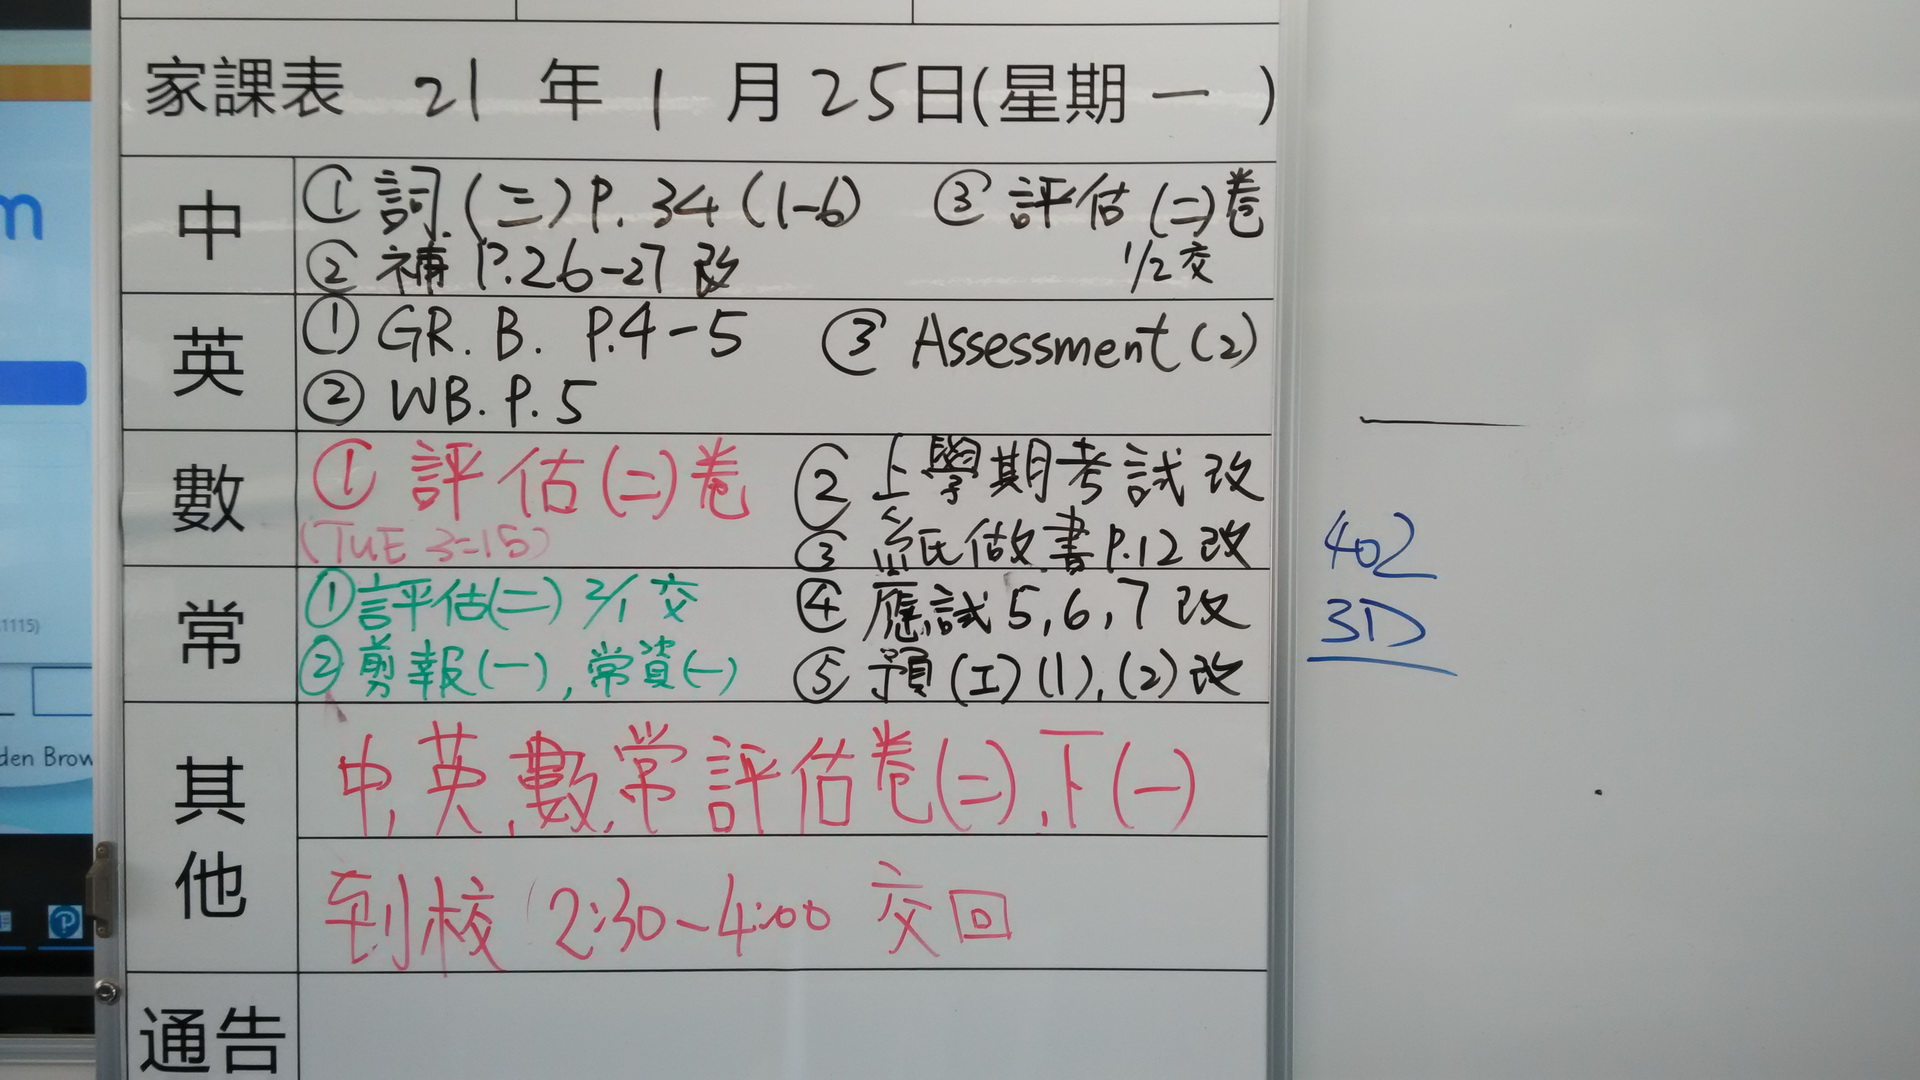 家課表 21 年 1 月 25日(星期 一 )
中
① 詞.(三)P.34 (1-6) ③ 評估 (二)卷
② 補 P.26-27 改 1/2 交
英
① GR. B. P.4-5 ③ Assessment (2)
② WB. P. 5
數
① 評估(二)卷 ② 上學期考試改
(TUE 3=15) 書P.12 改
常
①評估(二) 2/1 交 ④ 應試 5, 6, 7 改
②剪報(一), 常資(一) ⑤ 預(工)(1), (2)改
其他
中,英,數,常評估卷(二),下(一)
到校 2:30-4:00 交回
通告
402
3D
m
.1115)
den Brow